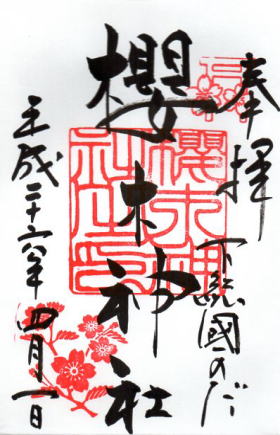 奉拝
下総國のだ
櫻木神社
櫻木神社之印
平成二十六年四月一日